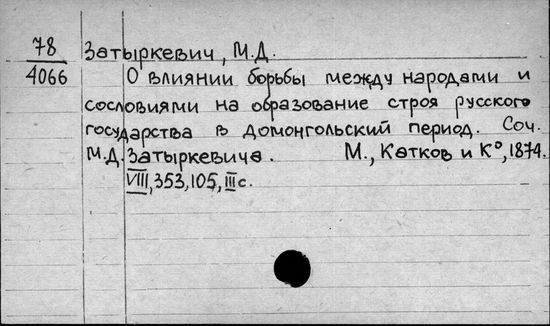 78 Затыркевич, М.Д.
4066 О влиянии борьбы между народами и
сословиями на образование строя русского
государства в домонгольский период. Соч.
М.Д. Затыркевича. М., Катков и К°, 1874.
VIII, 353, 105, III с.